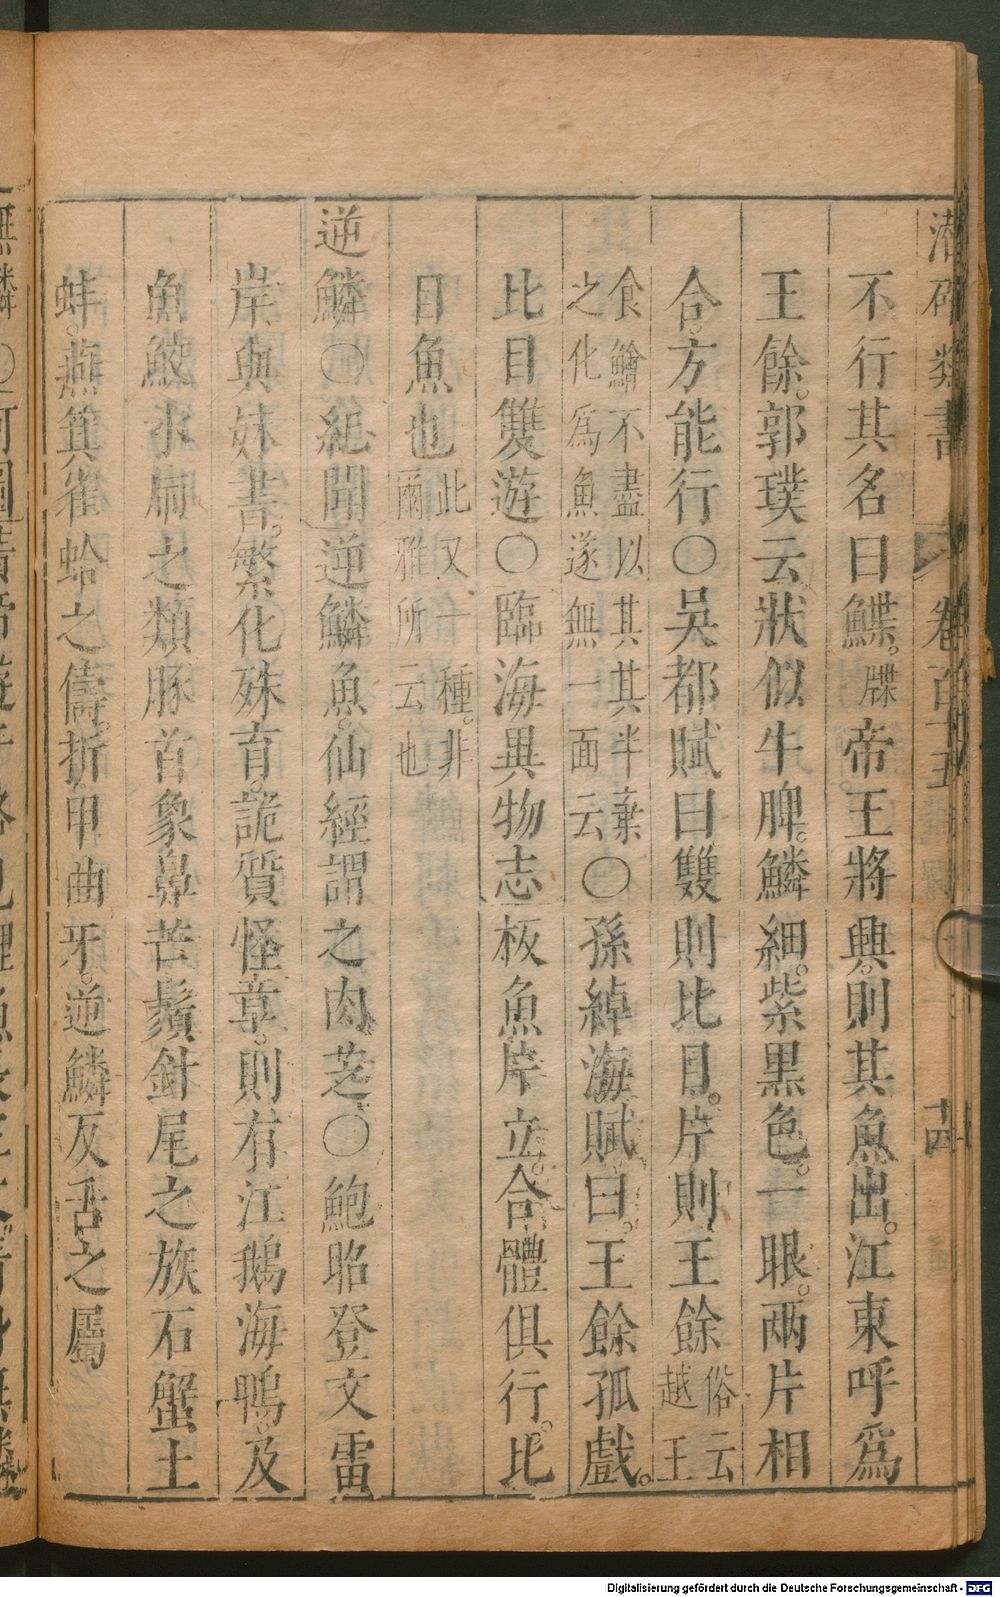 潛確類書 卷百十五 十四
不行其名曰鰈。牒帝王將興。則其魚出。江東呼爲
王餘。郭璞云狀似牛脾。鱗細。紫黒色。一眼。兩片相
合。方能行○吳都賦曰雙則比目。片則王餘俗云越王
食鱠不盡以其其半棄之化爲魚遂無一面云○孫綽海賦曰。王餘孤戲。
比目雙遊○臨海異物志板魚片立。合體俱行。比
目魚也此又一種。非爾雅所云也
逆鱗○紀聞逆鱗魚。仙經謂之肉芝○鮑昭登文雷
岸與妹書。繁化殊育。詭質怪章。則有江鵝海鴨。及
魚鮫水䖢之類豚首象鼻芒鬚針尾之族石蟹土
蚌。燕箕雀蛤之儔。折甲曲牙。逆鱗反舌之屬
Digitalisierung gefördert durch die Deutsche Forschungsgemeinschaft - DFG